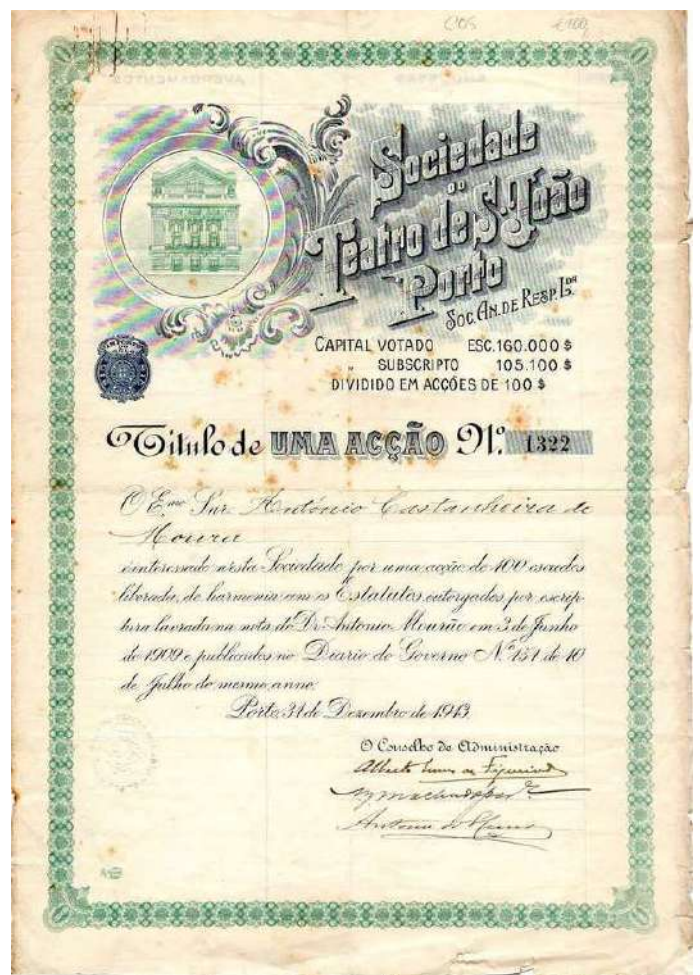 Sociedade
DO
Teatro de S. João
Porto
Soc. An. de Resp. Lda
CAPITAL VOTADO ESC. 160.000 $
" SUBSCRIPTO 105.100 $
DIVIDIDO EM ACCÕES DE 100 $
Titulo de UMA ACÇÃO Nº 1322
O Exmo Snr. António Castanheira de
Moura
é interessado nesta Sociedade por uma acção de 100 escudos
liberada, de harmonia com os Estatutos outorgados por escrip-
tura lavrada na nota do Dr. Antonio Mourão em 3 de Junho
de 1909 e publicados no Diario do Governo Nº 151 de 10
de Julho do mesmo anno.
Porto, 31 de Dezembro de 1913.
O Conselho de Administração